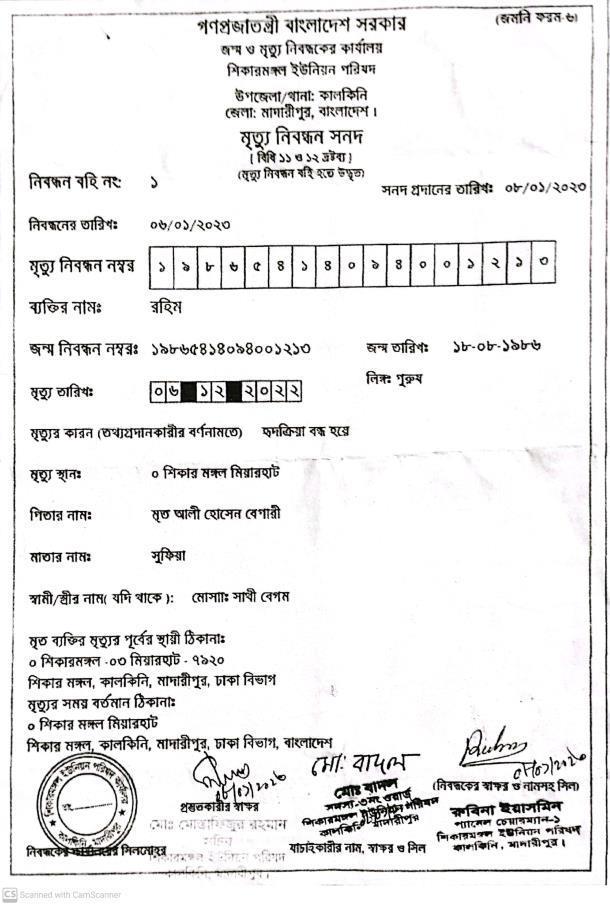 গণপ্রজাতন্ত্রী বাংলাদেশ সরকার
(জমনি ফরম-৬)
জন্ম ও মৃত্যু নিবন্ধকের কার্যালয়
শিকারমঙ্গল ইউনিয়ন পরিষদ
উপজেলা/থানা: কালকিনি
জেলা: মাদারীপুর, বাংলাদেশ।
মৃত্যু নিবন্ধন সনদ
[ বিধি ১১ ও ১২ দ্রষ্টব্য ]
(মৃত্যু নিবন্ধন বহি হতে উদ্ধৃত)
নিবন্ধন বহি নং: ১
সনদ প্রদানের তারিখঃ ০৮/০১/২০২৩
নিবন্ধনের তারিখঃ ০৬/০১/২০২৩
মৃত্যু নিবন্ধন নম্বর ১ ৯ ৮ ৬ ৫ ৪ ১ ৪ ০ ৯ ৪ ০ ০ ১ ২ ১ ৩
ব্যক্তির নামঃ রহিম
জন্ম নিবন্ধন নম্বরঃ ১৯৮৬৫৪১৪০৯৪০০১২১৩ জন্ম তারিখঃ ১৮-০৮-১৯৮৬
লিঙ্গঃ পুরুষ
মৃত্যু তারিখঃ ০৬ ১২ ২০২২
মৃত্যুর কারন (তথ্যপ্রদানকারীর বর্ণনামতে) হৃদক্রিয়া বন্ধ হয়ে
মৃত্যু স্থানঃ ০ শিকার মঙ্গল মিয়ারহাট
পিতার নামঃ মৃত আলী হোসেন বেপারী
মাতার নামঃ সুফিয়া
স্বামী/স্ত্রীর নাম( যদি থাকে ): মোসাঃ সাথী বেগম
মৃত ব্যক্তির মৃত্যুর পূর্বের স্থায়ী ঠিকানাঃ
০ শিকারমঙ্গল -০৩ মিয়ারহাট - ৭৯২০
শিকার মঙ্গল, কালকিনি, মাদারীপুর, ঢাকা বিভাগ
মৃত্যুর সময় বর্তমান ঠিকানাঃ
০ শিকার মঙ্গল মিয়ারহাট
শিকার মঙ্গল, কালকিনি, মাদারীপুর, ঢাকা বিভাগ, বাংলাদেশ
মো: বাদল
০৮/০১/২০২৩
প্রস্তুতকারীর স্বাক্ষর
মোঃ মোস্তাফিজুর রহমান
সচিব
শিকারমঙ্গল ইউনিয়ন পরিষদ
কালকিনি, মাদারীপুর
মোঃ বাদল
সদস্য-৩নং ওয়ার্ড
শিকারমঙ্গল ইউনিয়ন পরিষদ
কালকিনি, মাদারীপুর
যাচাইকারীর নাম, স্বাক্ষর ও সিল
০৮/০১/২০২৩
(নিবন্ধকের স্বাক্ষর ও নামসহ সিল)
রুবিনা ইয়াসমিন
প্যানেল চেয়ারম্যান-১
শিকারমঙ্গল ইউনিয়ন পরিষদ
কালকিনি, মাদারীপুর।
শিকারমঙ্গল ইউনিয়ন পরিষদ কার্যালয়
কালকিনি, মাদারীপুর
নিবন্ধকের কার্যালয়ের সিলমোহর
CS Scanned with CamScanner